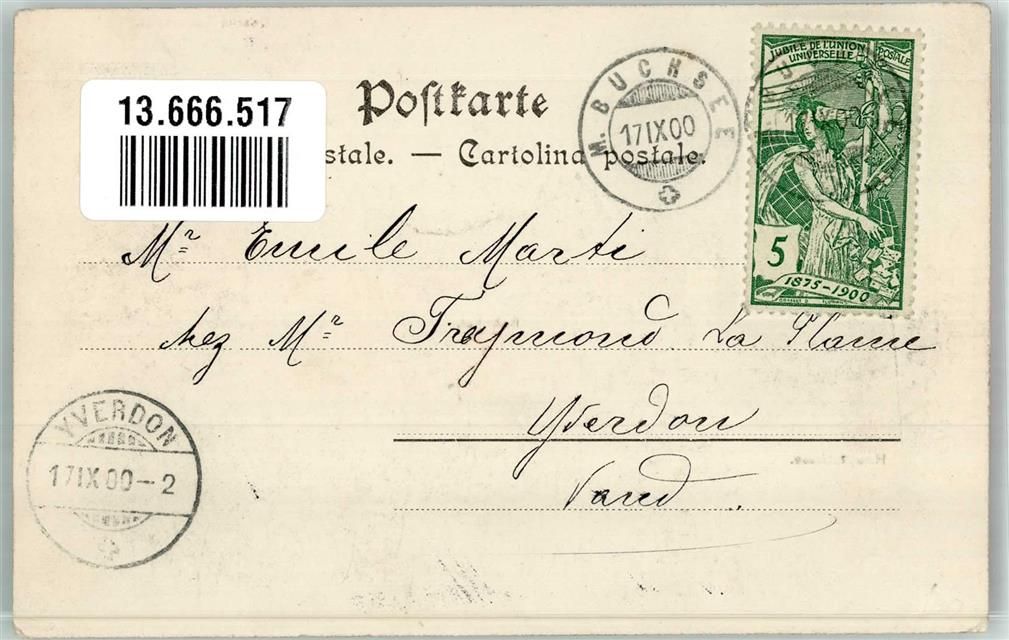 13.666.517
Postkarte
stale. — Cartolina postale.
M. BUCHSEE
17 IX 00
JUBILÉ DE L'UNION POSTALE
UNIVERSELLE
5
1875-1900
Mr Emile Marti
chez Mr Fraymond La Plaine
Yverdon
Vaud.
YVERDON
17 IX 00-2